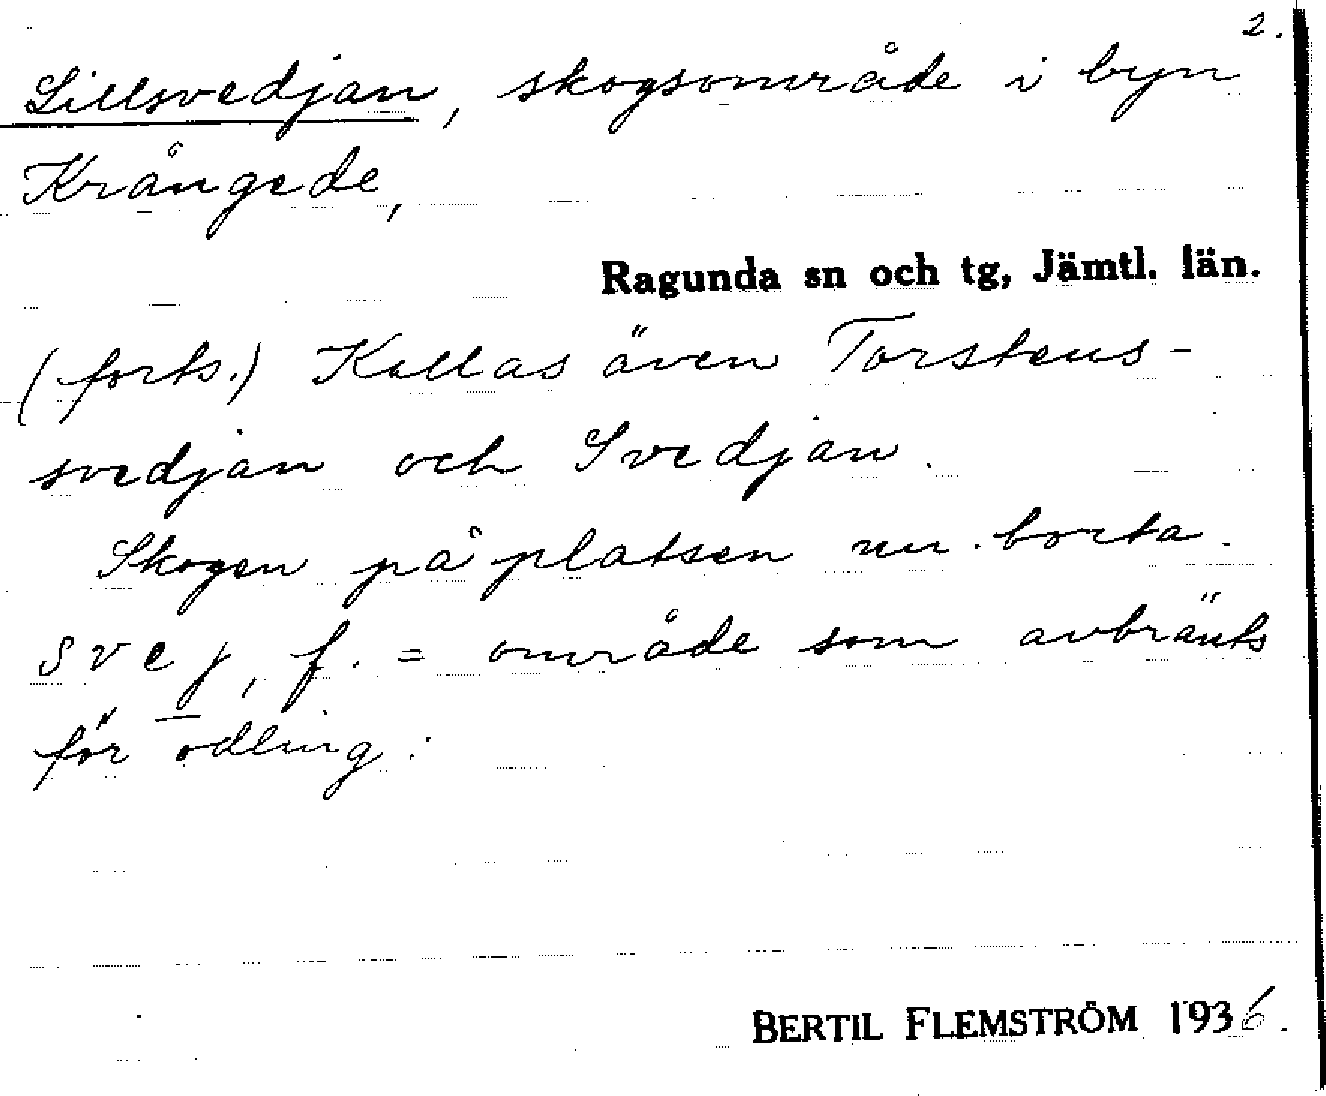 2.
Lillsvedjan, skogsområde i byn
Krångede,
Ragunda sn och tg, Jämtl. län.
(forts.) Kallas även Torstens-
svedjan och Svedjan.
Skogen på platsen nu borta.
svej, f. = område som avbränts
för odling.
BERTIL FLEMSTRÖM 1936.